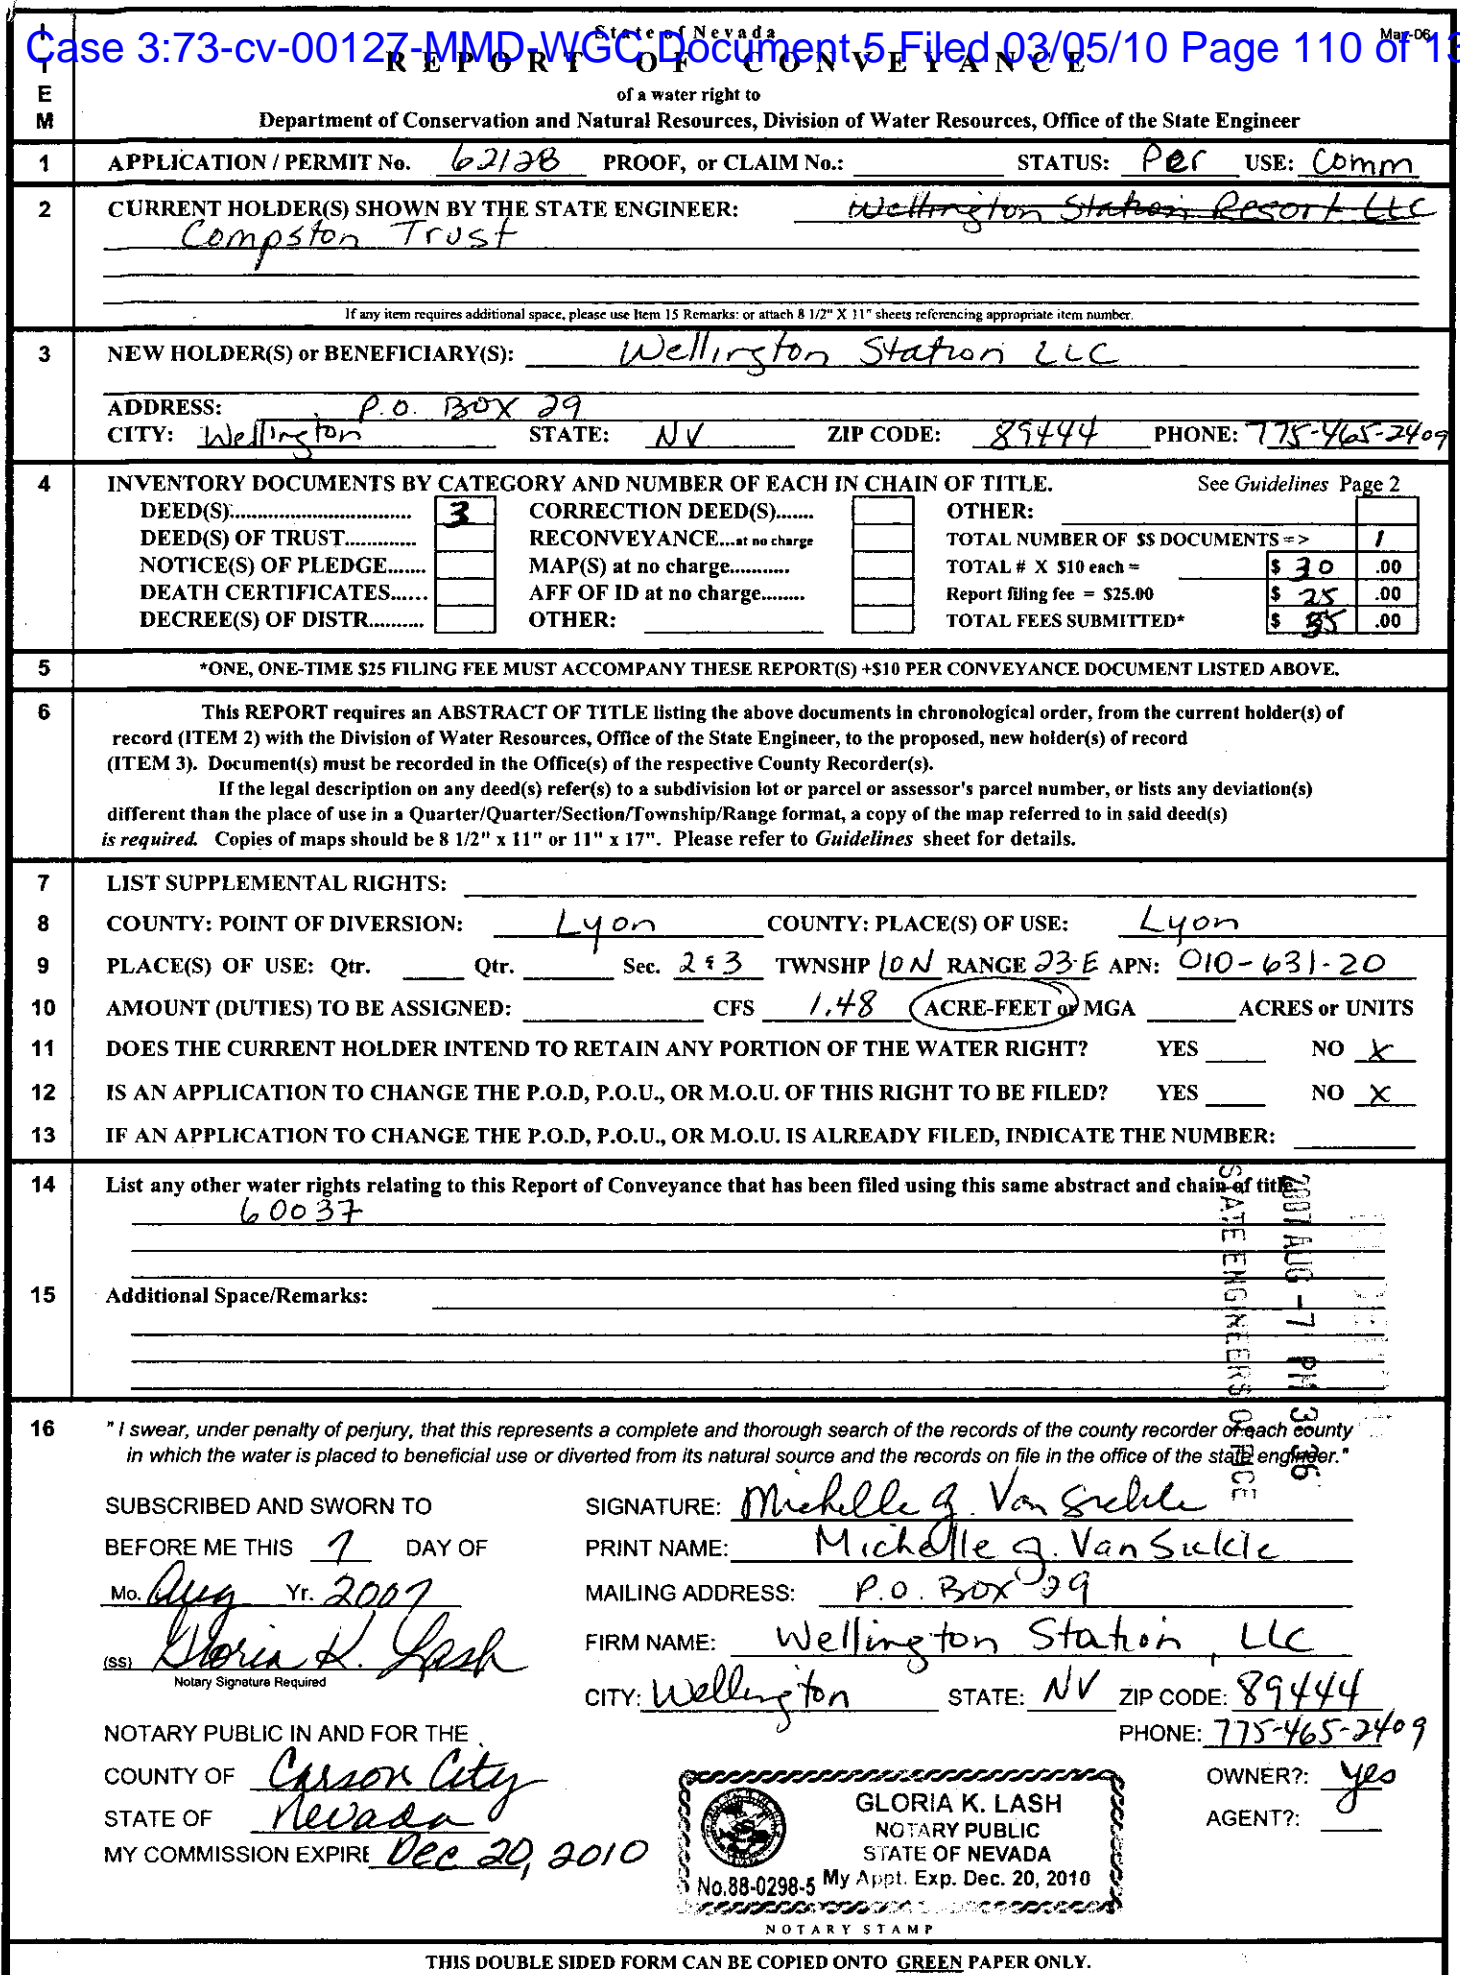 State of Nevada
May-06
Case 3:73-cv-00127-MMD-WGC Document 5 Filed 03/05/10 Page 110 of 13
REPORT OF CONVEYANCE
of a water right to
Department of Conservation and Natural Resources, Division of Water Resources, Office of the State Engineer
ITEM
1 APPLICATION / PERMIT No. 62128 PROOF, or CLAIM No.: STATUS: Per USE: Comm
2 CURRENT HOLDER(S) SHOWN BY THE STATE ENGINEER: Wellington Station Resort LLC
Compston Trust
If any item requires additional space, please use Item 15 Remarks: or attach 8 1/2" X 11" sheets referencing appropriate item number.
3 NEW HOLDER(S) or BENEFICIARY(S): Wellington Station LLC
ADDRESS: P.O. BOX 29
CITY: Wellington STATE: NV ZIP CODE: 89444 PHONE: 775-465-2409
4 INVENTORY DOCUMENTS BY CATEGORY AND NUMBER OF EACH IN CHAIN OF TITLE. See Guidelines Page 2
DEED(S)................................ 3 CORRECTION DEED(S)....... OTHER:
DEED(S) OF TRUST............. RECONVEYANCE...at no charge TOTAL NUMBER OF $$ DOCUMENTS => 1
NOTICE(S) OF PLEDGE....... MAP(S) at no charge........... TOTAL # X $10 each = $ 30 .00
DEATH CERTIFICATES...... AFF OF ID at no charge........ Report filing fee = $25.00 $ 25 .00
DECREE(S) OF DISTR.......... OTHER: TOTAL FEES SUBMITTED* $ .00
5 *ONE, ONE-TIME $25 FILING FEE MUST ACCOMPANY THESE REPORT(S) +$10 PER CONVEYANCE DOCUMENT LISTED ABOVE.
6 This REPORT requires an ABSTRACT OF TITLE listing the above documents in chronological order, from the current holder(s) of
record (ITEM 2) with the Division of Water Resources, Office of the State Engineer, to the proposed, new holder(s) of record
(ITEM 3). Document(s) must be recorded in the Office(s) of the respective County Recorder(s).
If the legal description on any deed(s) refer(s) to a subdivision lot or parcel or assessor's parcel number, or lists any deviation(s)
different than the place of use in a Quarter/Quarter/Section/Township/Range format, a copy of the map referred to in said deed(s)
is required. Copies of maps should be 8 1/2" x 11" or 11" x 17". Please refer to Guidelines sheet for details.
7 LIST SUPPLEMENTAL RIGHTS:
8 COUNTY: POINT OF DIVERSION: Lyon COUNTY: PLACE(S) OF USE: Lyon
9 PLACE(S) OF USE: Qtr. Qtr. Sec. 2 & 3 TWNSHP 10 N RANGE 23 E APN: 010-631-20
10 AMOUNT (DUTIES) TO BE ASSIGNED: CFS 1.48 ACRE-FEET or MGA ACRES or UNITS
11 DOES THE CURRENT HOLDER INTEND TO RETAIN ANY PORTION OF THE WATER RIGHT? YES NO X
12 IS AN APPLICATION TO CHANGE THE P.O.D, P.O.U., OR M.O.U. OF THIS RIGHT TO BE FILED? YES NO X
13 IF AN APPLICATION TO CHANGE THE P.O.D, P.O.U., OR M.O.U. IS ALREADY FILED, INDICATE THE NUMBER:
14 List any other water rights relating to this Report of Conveyance that has been filed using this same abstract and chain of title.
60037
15 Additional Space/Remarks:
2007 AUG -7 PM 3:36
STATE ENGINEERS OFFICE
16 "I swear, under penalty of perjury, that this represents a complete and thorough search of the records of the county recorder of each county
in which the water is placed to beneficial use or diverted from its natural source and the records on file in the office of the state engineer."
SUBSCRIBED AND SWORN TO SIGNATURE: Michelle J. Van Sickle
BEFORE ME THIS 7 DAY OF PRINT NAME: Michelle J. Van Sickle
Mo. Aug Yr. 2007 MAILING ADDRESS: P.O. Box 29
(SS) Gloria K. Lash FIRM NAME: Wellington Station, LLC
Notary Signature Required
CITY: Wellington STATE: NV ZIP CODE: 89444
NOTARY PUBLIC IN AND FOR THE PHONE: 775-465-2409
COUNTY OF Carson City OWNER?: yes
STATE OF Nevada AGENT?:
MY COMMISSION EXPIRE Dec 20, 2010
GLORIA K. LASH
NOTARY PUBLIC
STATE OF NEVADA
No.88-0298-5 My Appt. Exp. Dec. 20, 2010
NOTARY STAMP
THIS DOUBLE SIDED FORM CAN BE COPIED ONTO GREEN PAPER ONLY.